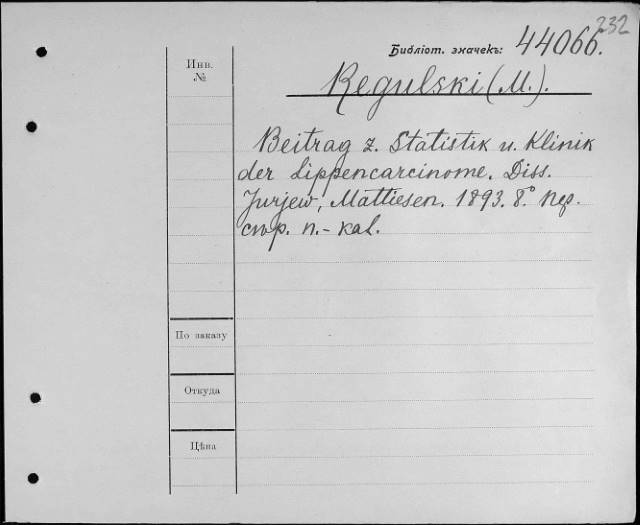 232
Библіот. значекъ: 44066.
Инв.
№
Regulski (M.).
Beitrag z. Statistik u. Klinik
der Lippencarcinome. Diss.
Jurjew, Mattiesen. 1893. 8°.
По заказу
Откуда
Цѣна